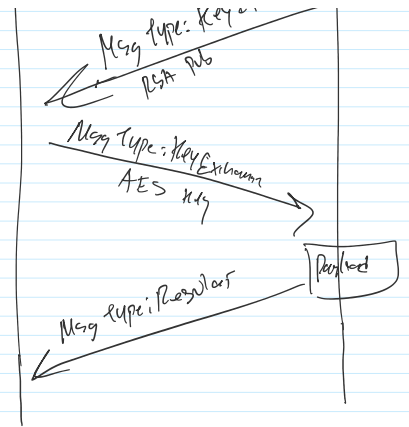 Msg Type: Key
RSA Pub
Msg Type: Key Exchange
AES Key
Payload
Msg Type: Regular